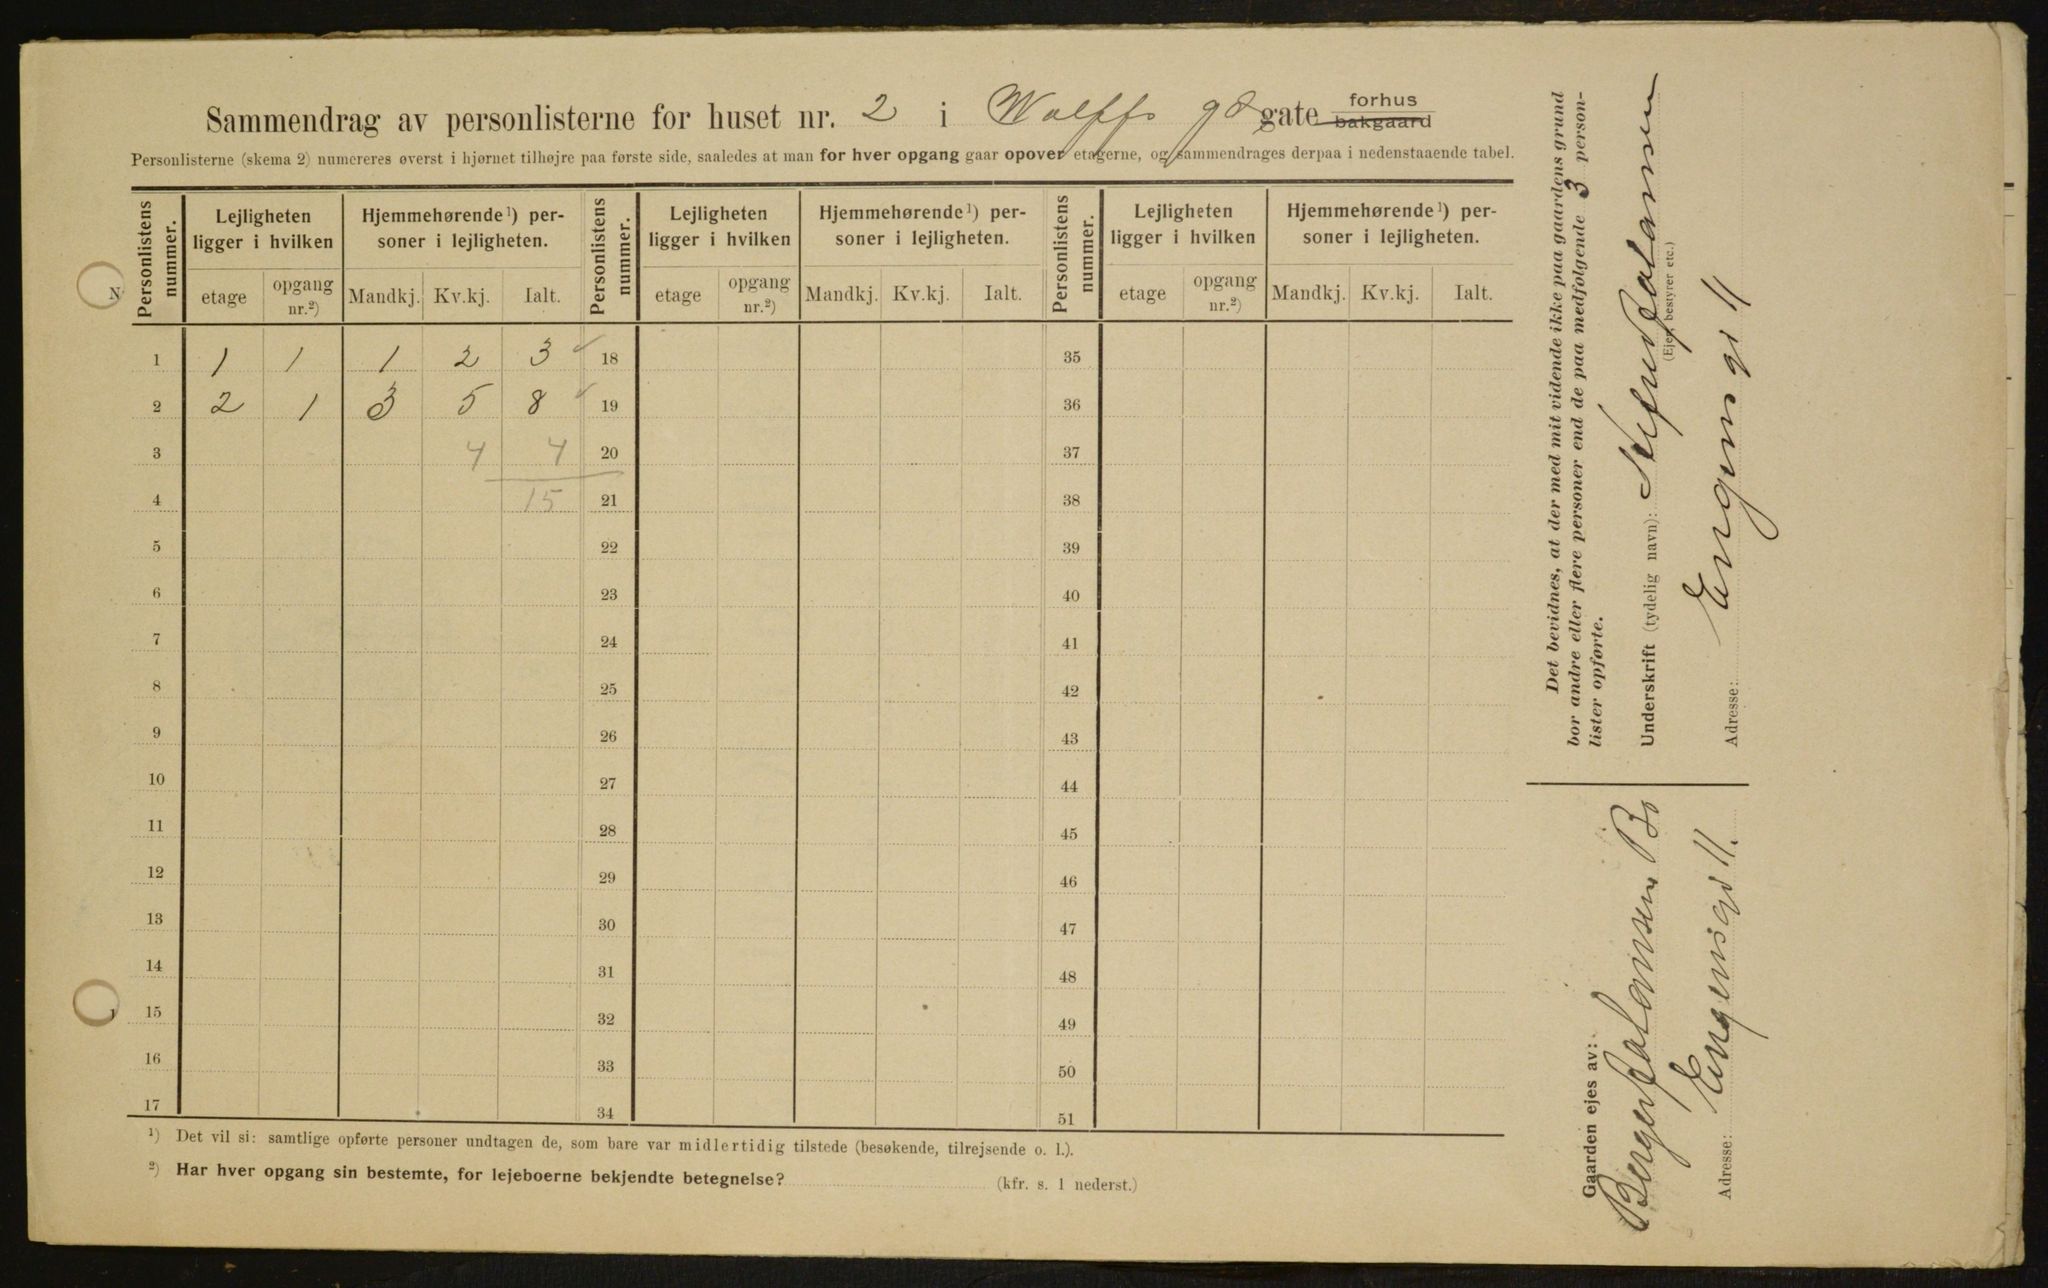 Sammendrag av personlisterne for huset nr. 2 i Wolffs gd. gate forhus bakgaard
Personlisterne (skema 2) numereres øverst i hjørnet tilhøjre paa første side, saaledes at man for hver opgang gaar opover etagerne, og sammendrages derpaa i nedenstaaende tabel.
Personlistens nummer. Lejligheten ligger i hvilken Hjemmehørende¹) personer i lejligheten. Personlistens nummer. Lejligheten ligger i hvilken Hjemmehørende¹) personer i lejligheten. Personlistens nummer. Lejligheten ligger i hvilken Hjemmehørende¹) personer i lejligheten.
etage opgang nr.²) Mandkj. Kv.kj. Ialt. etage opgang nr.²) Mandkj. Kv.kj. Ialt. etage opgang nr.²) Mandkj. Kv.kj. Ialt.
1 1 1 1 2 3 18 35
2 2 1 3 5 8 19 36
3 4 4 20 37
4 15 21 38
5 22 39
6 23 40
7 24 41
8 25 42
9 26 43
10 27 44
11 28 45
12 29 46
13 30 47
14 31 48
15 32 49
16 33 50
17 34 51
¹) Det vil si: samtlige opførte personer undtagen de, som bare var midlertidig tilstede (besøkende, tilrejsende o. l.).
²) Har hver opgang sin bestemte, for lejeboerne bekjendte betegnelse? (kfr. s. 1 nederst.)
Det bevidnes, at der med mit vidende ikke paa gaardens grund
bor andre eller flere personer end de paa medfølgende 3 person-
lister opførte.
Underskrift (tydelig navn):
(Ejer, bestyrer etc.)
Adresse: Engensgt 11
Gaarden ejes av:
Berger
Adresse: Engensgt 11.